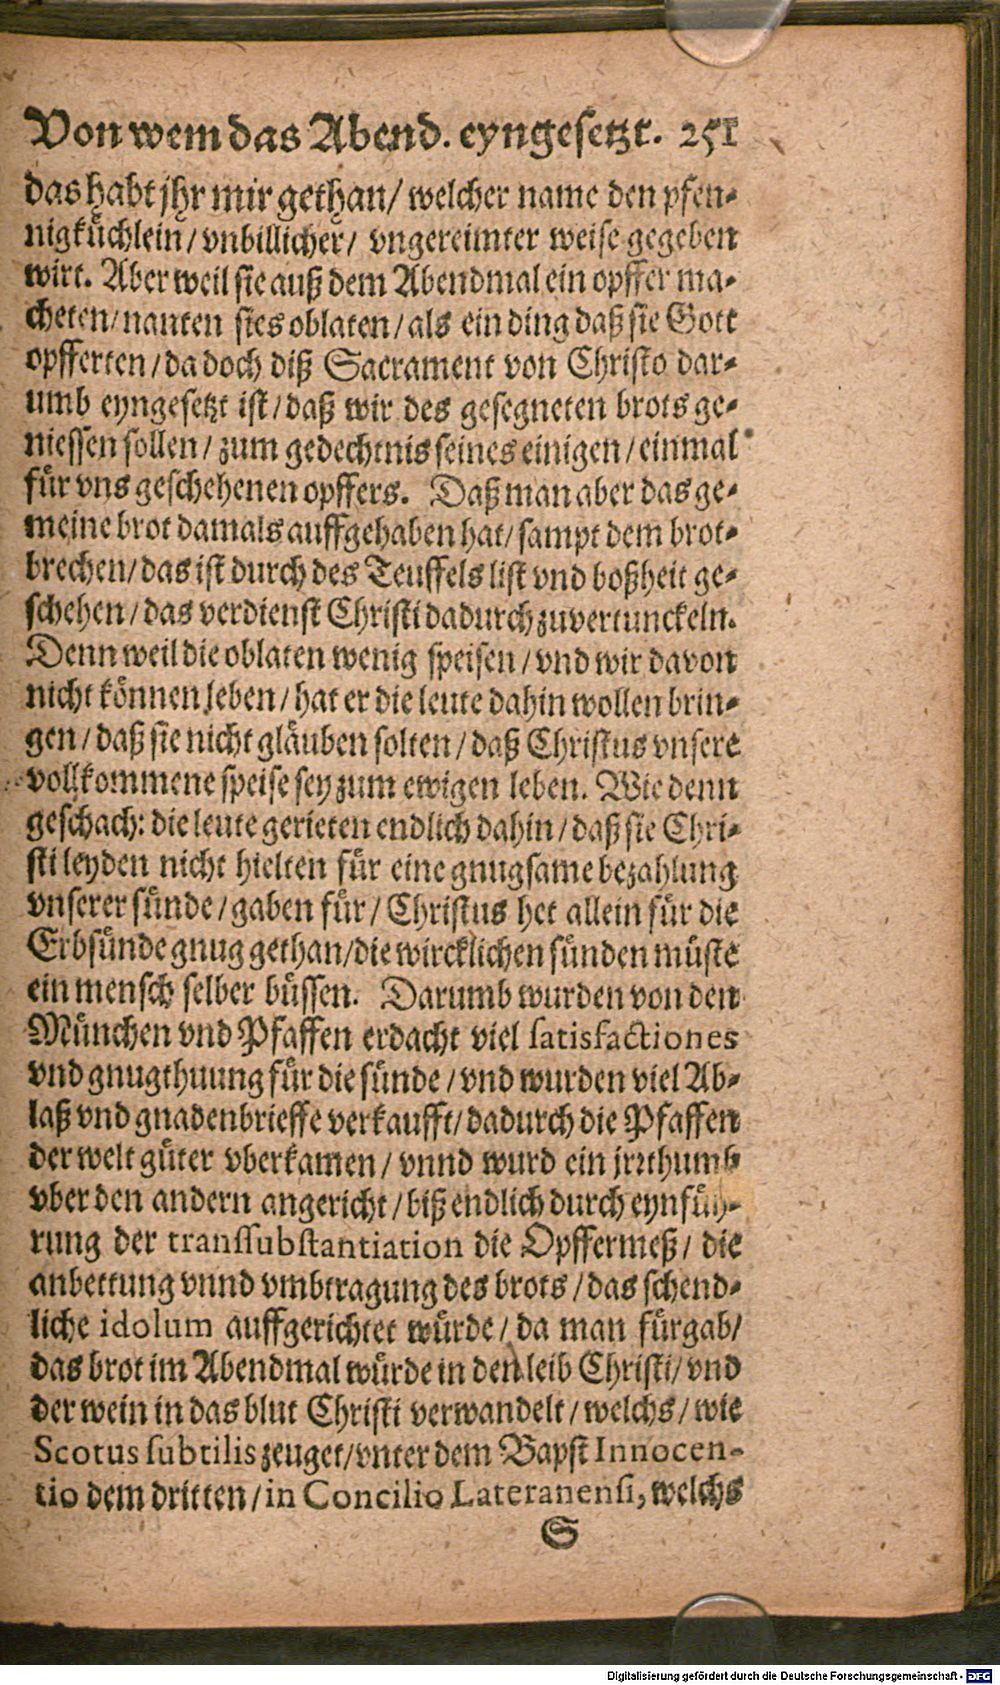 Von wem das Abend. eyngesetzt. 251
das habt jhr mir gethan/ welcher name den pfen-
nigküchlein/ vnbillicher/ vngereimter weise gegeben
wirt. Aber weil sie auß dem Abendmal ein opffer ma-
cheten/ nanten sies oblaten/ als ein ding daß sie Gott
opfferten/ da doch diß Sacrament von Christo dar-
umb eyngesetzt ist/ daß wir des gesegneten brots ge-
niessen sollen/ zum gedechtnis seines einigen/ einmal
für vns geschehenen opffers. Daß man aber das ge-
meine brot damals auffgehaben hat/ sampt dem brot-
brechen/ das ist durch des Teuffels list vnd boßheit ge-
schehen/ das verdienst Christi dadurch zuvertunckeln.
Denn weil die oblaten wenig speisen/ vnd wir davon
nicht können leben/ hat er die leute dahin wollen brin-
gen/ daß sie nicht gläuben solten/ daß Christus vnsere
vollkommene speise sey zum ewigen leben. Wie denn
geschach: die leute gerieten endlich dahin/ daß sie Chri-
sti leyden nicht hielten für eine gnugsame bezahlung
vnserer sünde/ gaben für/ Christus het allein für die
Erbsünde gnug gethan/ die wircklichen sünden müste
ein mensch selber büssen. Darumb wurden von den
München vnd Pfaffen erdacht viel satisfactiones
vnd gnugthuung für die sünde/ vnd wurden viel Ab-
laß vnd gnadenbrieffe verkaufft/ dadurch die Pfaffen
der welt güter vberkamen/ vnnd wurd ein jrrthumb
vber den andern angericht/ biß endlich durch eynfüh-
rung der transsubstantiation die Opffermeß/ die
anbettung vnnd vmbtragung des brots/ das schend-
liche idolum auffgerichtet würde/ da man fürgab/
das brot im Abendmal würde in den leib Christi/ vnd
der wein in das blut Christi verwandelt/ welchs/ wie
Scotus subtilis zeuget/ vnter dem Bapst Innocen-
tio dem dritten/ in Concilio Lateranensi, welchs
S
Digitalisierung gefördert durch die Deutsche Forschungsgemeinschaft - DFG